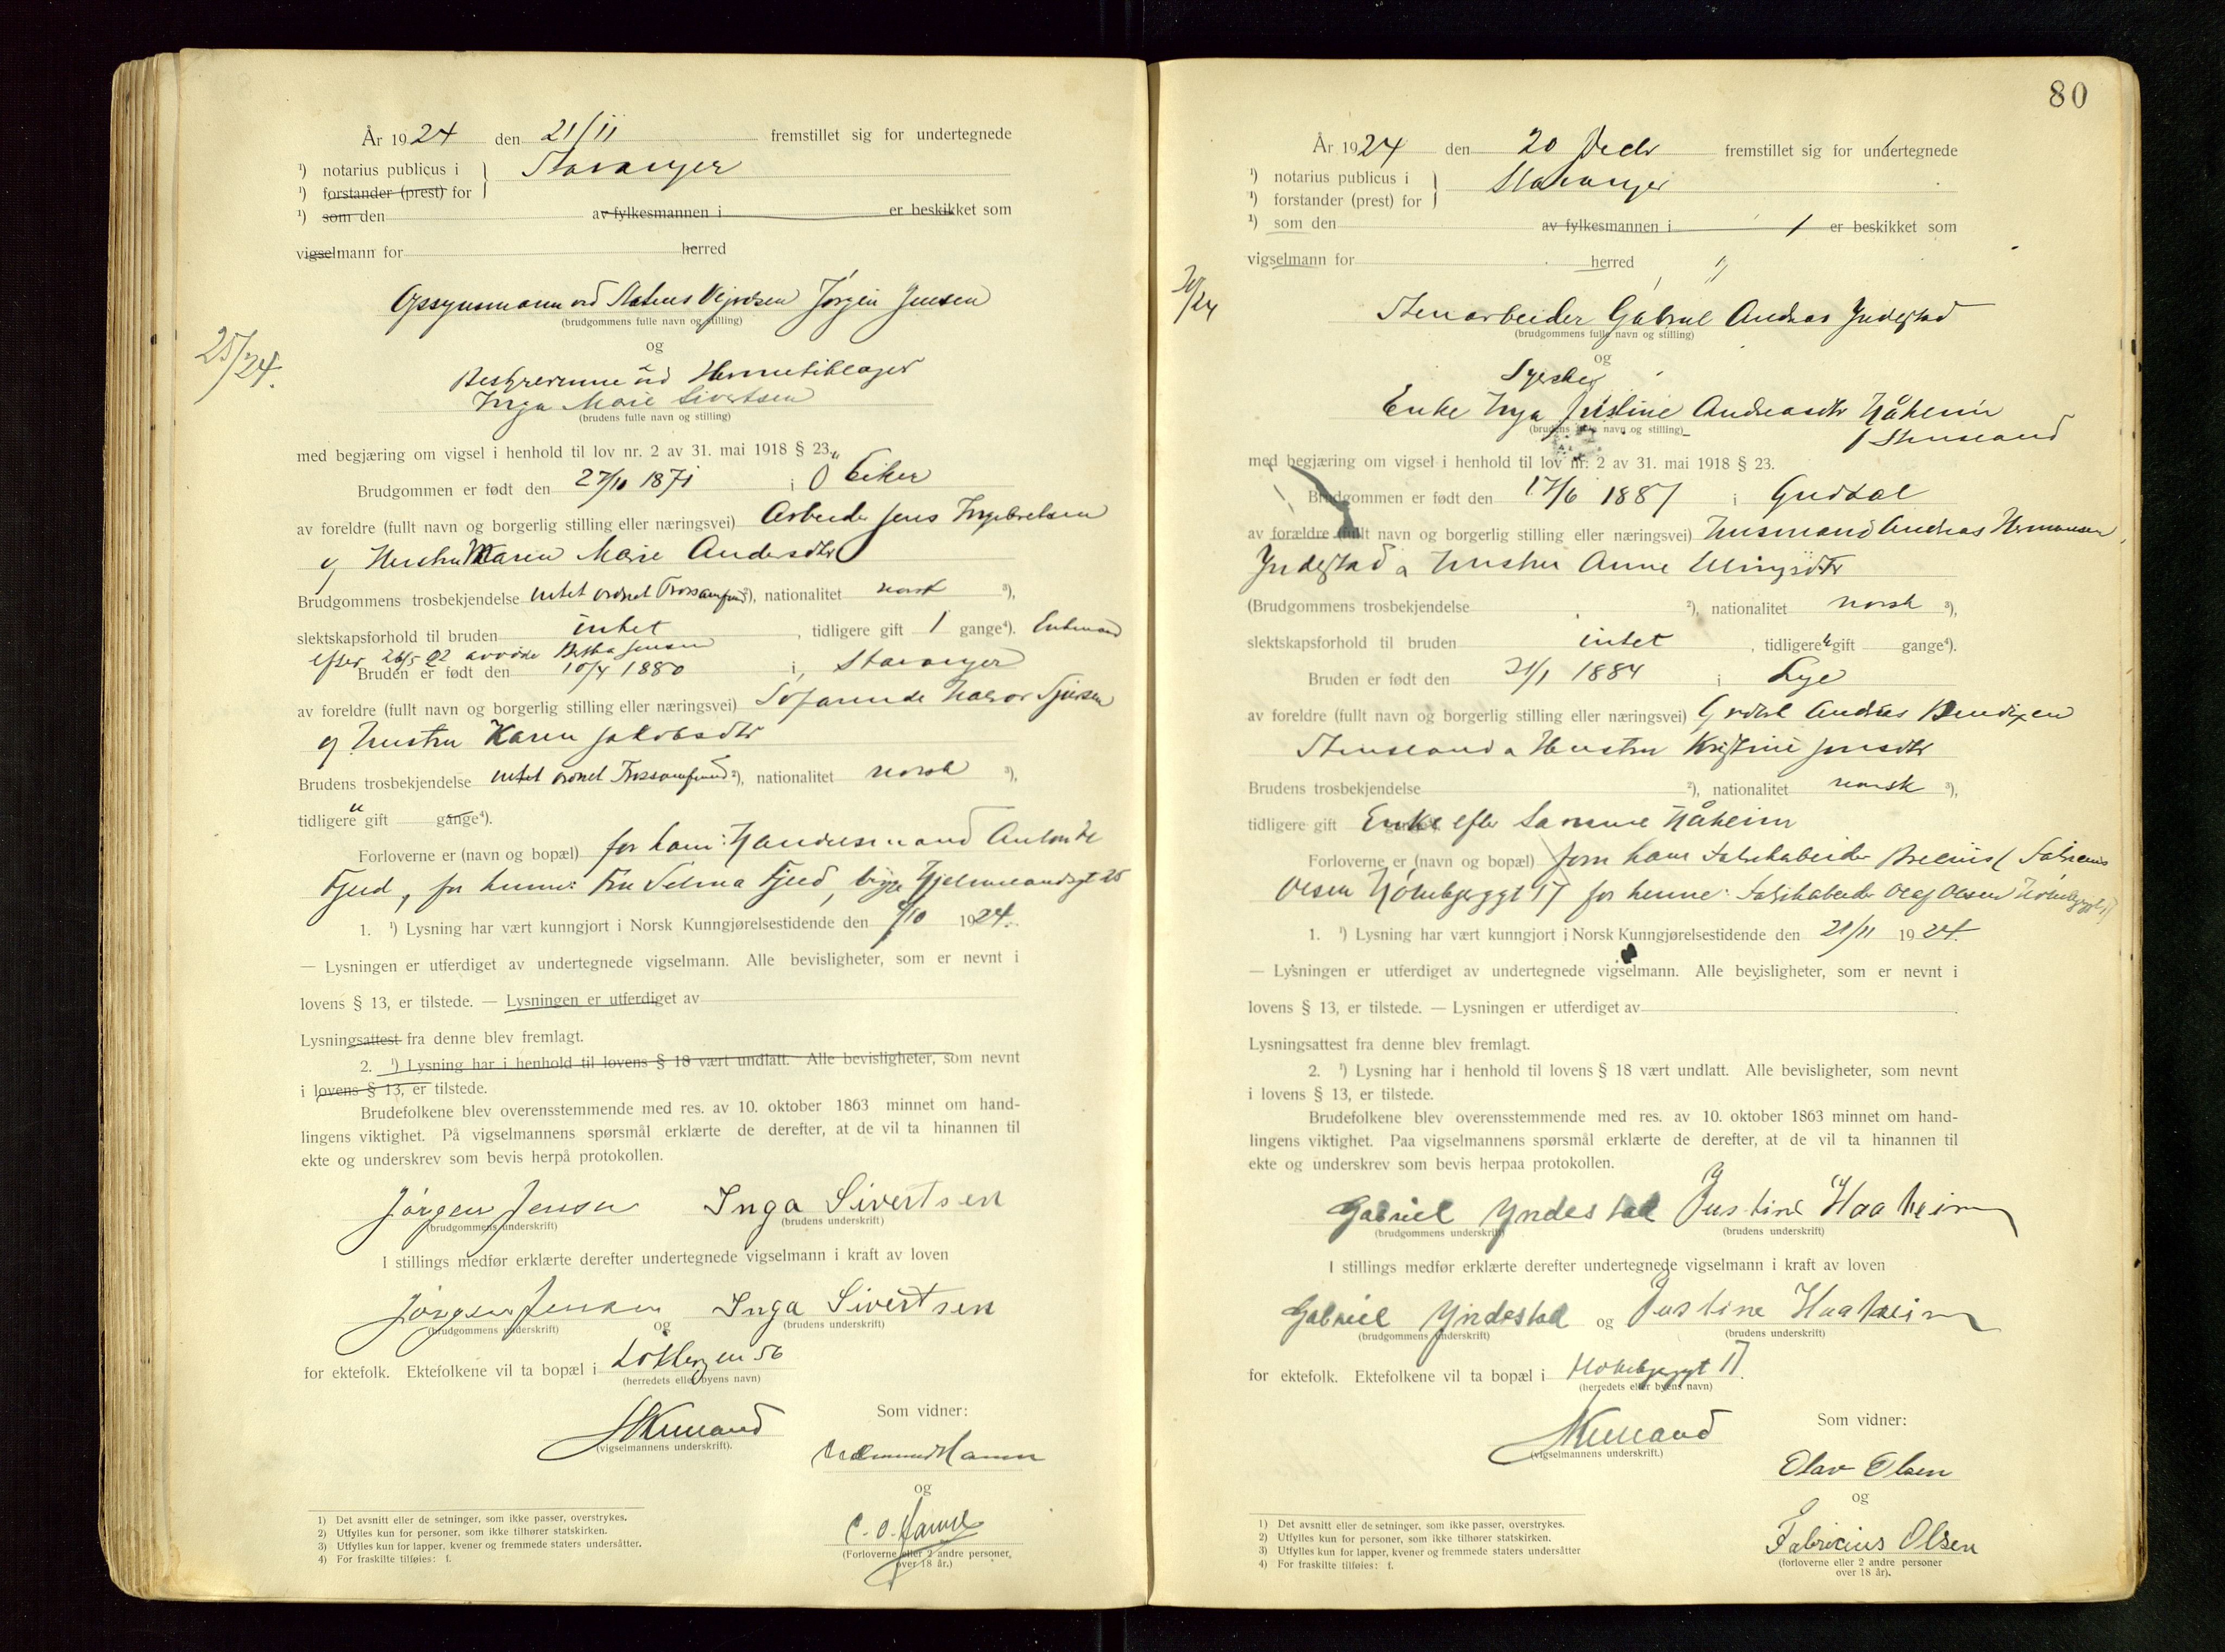 År 1924 den 21/11 fremstillet sig for undertegnede
¹) notarius publicus i } Stavanger
¹) forstander (prest) for
¹) som den av fylkesmannen i er beskikket som
vigselmann for herred
Opsynsmann ved Statens Jørgen Jensen
(brudgommens fulle navn og stilling)
25/24.
og
Bestyrerinne ved
Inga Marie Sivertsen
(brudens fulle navn og stilling)
med begjæring om vigsel i henhold til lov nr. 2 av 31. mai 1918 § 23.
Brudgommen er født den 27/10 1871 i Ø Eiker
av foreldre (fullt navn og borgerlig stilling eller næringsvei) Arbeider Jens Ingebretsen
og Hustru Maren Marie Andersdtr
Brudgommens trosbekjendelse intet ordnet Trossamfund ²), nationalitet norsk ³),
slektskapsforhold til bruden intet , tidligere gift 1 gange⁴). Enkemand
efter 26/5 02 avdøde Bertha Jensen
Bruden er født den 10/4 1880 i Stavanger
av foreldre (fullt navn og borgerlig stilling eller næringsvei) Sjøfarende Halvor
og Hustru Karen Jakobsdtr
Brudens trosbekjendelse intet ordnet Trossamfund ²), nationalitet norsk ³),
tidligere u gift gange⁴).
Forloverne er (navn og bopæl) for ham: Handelsmand Anton
Fjeld, for henne: Fru Selma Fjeld, begge Hjelmelandsgt 25
1. ¹) Lysning har vært kunngjort i Norsk Kunngjørelsestidende den /10 1924.
— Lysningen er utferdiget av undertegnede vigselmann. Alle bevisligheter, som er nevnt i
lovens § 13, er tilstede. — Lysningen er utferdiget av
Lysningsattest fra denne blev fremlagt.
2. ¹) Lysning har i henhold til lovens § 18 vært undlatt. Alle bevisligheter, som nevnt
i lovens § 13, er tilstede.
Brudefolkene blev overensstemmende med res. av 10. oktober 1863 minnet om hand-
lingens viktighet. På vigselmannens spørsmål erklærte de derefter, at de vil ta hinannen til
ekte og underskrev som bevis herpå protokollen.
Jørgen Jensen Inga Sivertsen
(brudgommens underskrift) (brudens underskrift)
I stillings medfør erklærte derefter undertegnede vigselmann i kraft av loven
Jørgen Jensen og Inga Sivertsen
(brudgommens underskrift) (brudens underskrift)
for ektefolk. Ektefolkene vil ta bopæl i 56
(herredets eller byens navn)
(vigselmannens underskrift).
Som vidner:
og
(Forloverne eller 2 andre personer,
over 18 år.)
1) Det avsnitt eller de setninger, som ikke passer, overstrykes.
2) Utfylles kun for personer, som ikke tilhører statskirken.
3) Utfylles kun for lapper, kvener og fremmede staters undersåtter.
4) For fraskilte tilføies: f.
80
År 1924 den 20 Decbr fremstillet sig for undertegnede
¹) notarius publicus i } Stavanger
¹) forstander (prest) for
¹) som den av fylkesmannen i er beskikket som
vigselmann for herred
Stenarbeider Gabriel Andreas Yndestad
(brudgommens fulle navn og stilling)
og
Syerske
Enke Inga Justine Andreasdtr Håheim
(brudens fulle navn og stilling)
f Stensland
med begjæring om vigsel i henhold til lov nr. 2 av 31. mai 1918 § 23.
Brudgommen er født den 17/6 1887 i Guddal
av forældre (fullt navn og borgerlig stilling eller næringsvei) Husmand Andreas Hermansen
Yndestad & Hustru Anne
(Brudgommens trosbekjendelse ²), nationalitet norsk ³),
slektskapsforhold til bruden intet , tidligere u gift gange⁴).
Bruden er født den 21/1 1884 i Lye
av foreldre (fullt navn og borgerlig stilling eller næringsvei) Grdbr Andreas Bendixen
Stensland & Hustru Kristine Jensdtr
Brudens trosbekjendelse ²), nationalitet norsk ³),
tidligere gift Enke efter Håheim
Forloverne er (navn og bopæl) for ham Fabrikarbeider Fabricius
Olsen 17 for henne: Fabrikarbeider Olaf Olsen
1. ¹) Lysning har vært kunngjort i Norsk Kunngjørelsestidende den 21/11 1924.
— Lysningen er utferdiget av undertegnede vigselmann. Alle bevisligheter, som er nevnt i
lovens § 13, er tilstede. — Lysningen er utferdiget av
Lysningsattest fra denne blev fremlagt.
2. ¹) Lysning har i henhold til lovens § 18 vært undlatt. Alle bevisligheter, som nevnt
i lovens § 13, er tilstede.
Brudefolkene blev overensstemmende med res. av 10. oktober 1863 minnet om hand-
lingens viktighet. Paa vigselmannens spørsmål erklærte de derefter, at de vil ta hinannen til
ekte og underskrev som bevis herpaa protokollen.
Gabriel Yndestad Justine Haaheim
(brudgommens underskrift) (brudens underskrift)
I stillings medfør erklærte derefter undertegnede vigselmann i kraft av loven
Gabriel Yndestad og Justine Haaheim
(brudgommens underskrift) (brudens underskrift)
for ektefolk. Ektefolkene vil ta bopæl i 17.
(herredets eller byens navn)
(vigselmannens underskrift.)
Som vidner:
Olav Olsen
og
Fabricius Olsen
(forloverne eller 2 andre personer
over 18 år).
1) Det avsnitt eller de setninger, som ikke passer, overstrykes.
2) Utfylles kun for personer, som ikke tilhører statskirken.
3) Utfylles kun for lapper, kvener og fremmede staters undersåtter
4) For fraskilte tilføies: f.